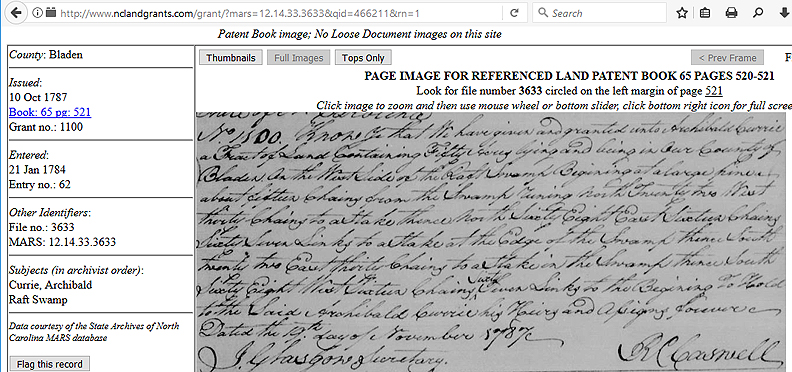 http://www.nclandgrants.com/grant/?mars=12.14.33.3633&qid=466211&rn=1
Search
Patent Book image; No Loose Document images on this site
County: Bladen
Issued:
10 Oct 1787
Book: 65 pg: 521
Grant no.: 1100
Entered:
21 Jan 1784
Entry no.: 62
Other Identifiers:
File no.: 3633
MARS: 12.14.33.3633
Subjects (in archivist order):
Currie, Archibald
Raft Swamp
Data courtesy of the State Archives of North
Carolina MARS database
Flag this record
Thumbnails Full Images Tops Only < Prev Frame F
PAGE IMAGE FOR REFERENCED LAND PATENT BOOK 65 PAGES 520-521
Look for file number 3633 circled on the left margin of page 521
Click image to zoom and then use mouse wheel or bottom slider, click bottom right icon for full scree
Know Ye that We have given and granted unto Archibald Currie
a Tract of Land Containing Fifty Acres lying and being in Our County of
Bladen On the West side of the Raft Swamp Begining at a large pine
about fifteen Chains from the Swamp runing North Twenty two West
thirty Chains to a Stake thence North Sixty Eight East Sixteen Chains
Sixty Seven Links to a Stake at the Edge of the Swamp thence South
twenty two East thirty Chains to a Stake in the Swamp thence South
Sixty Eight West Sixteen Chains Sixty Seven Links to the Begining To Hold
to the Said Archibald Currie his Heirs and Assigns forever
Dated the day of November 1787
J. Glasgow Secretary. Rd Caswell